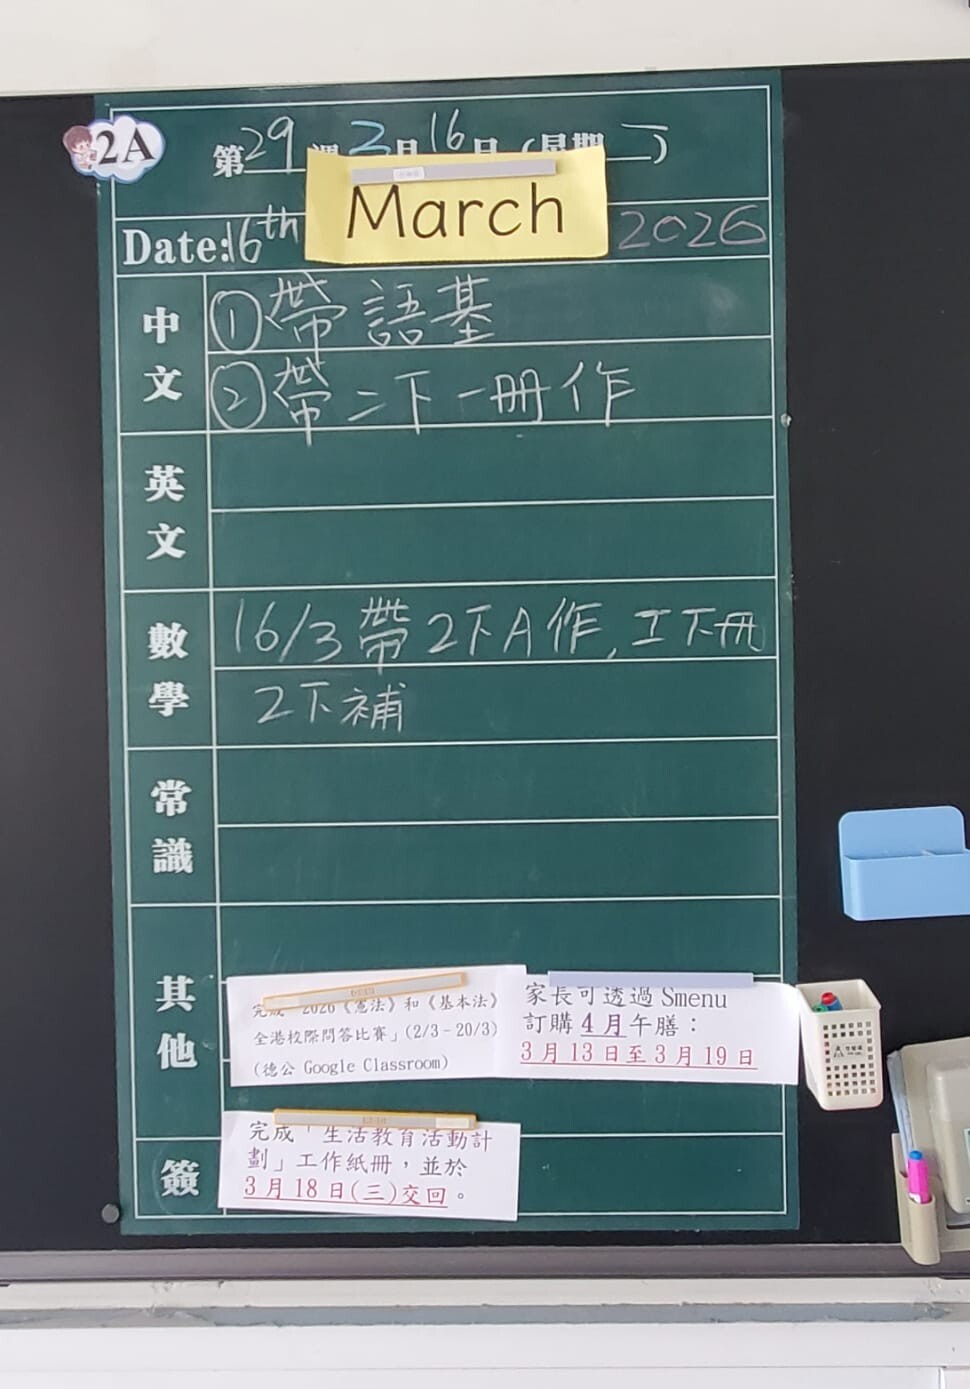 2A
第29週 3月16日（星期一）
March
Date:16th
2026
中文
①帶語基
②帶二下一冊作
英文
數學
16/3帶2下A作,工下冊
2下補
常識
其他
完成「2026《憲法》和《基本法》
全港校際問答比賽」(2/3-20/3)
(德公 Google Classroom)
家長可透過 Smenu
訂購4月午膳：
3月13日至3月19日
簽
完成「生活教育活動計
劃」工作紙冊，並於
3月18日(三)交回。